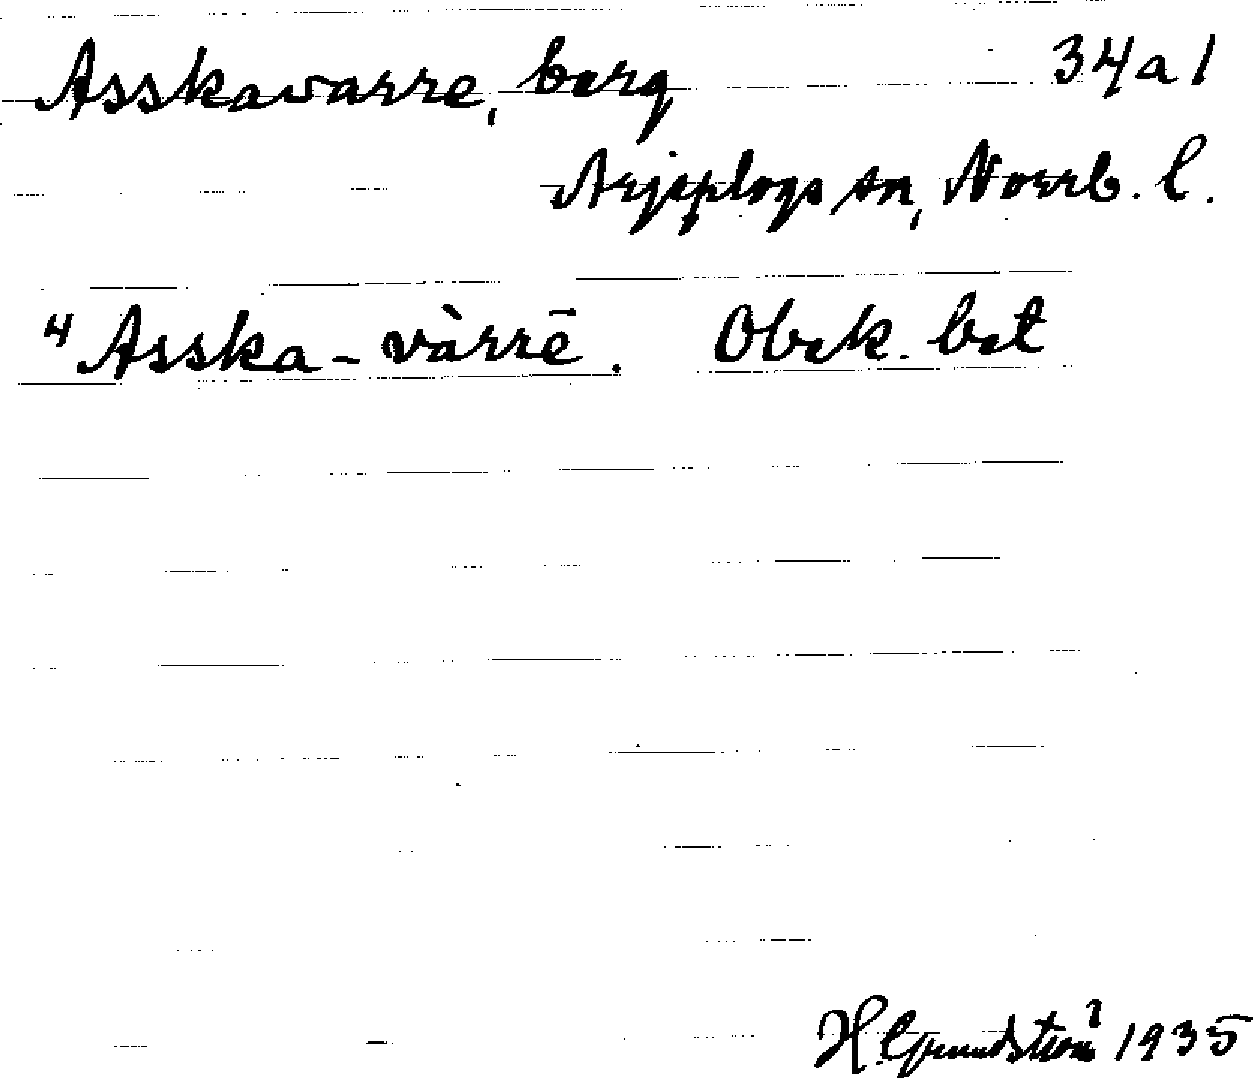 Asskavarre, berg 34a1
Arjeplogs sn, Norrb. l.
4 Asska-vàrrē. Obek. bet
H Grundström 1935